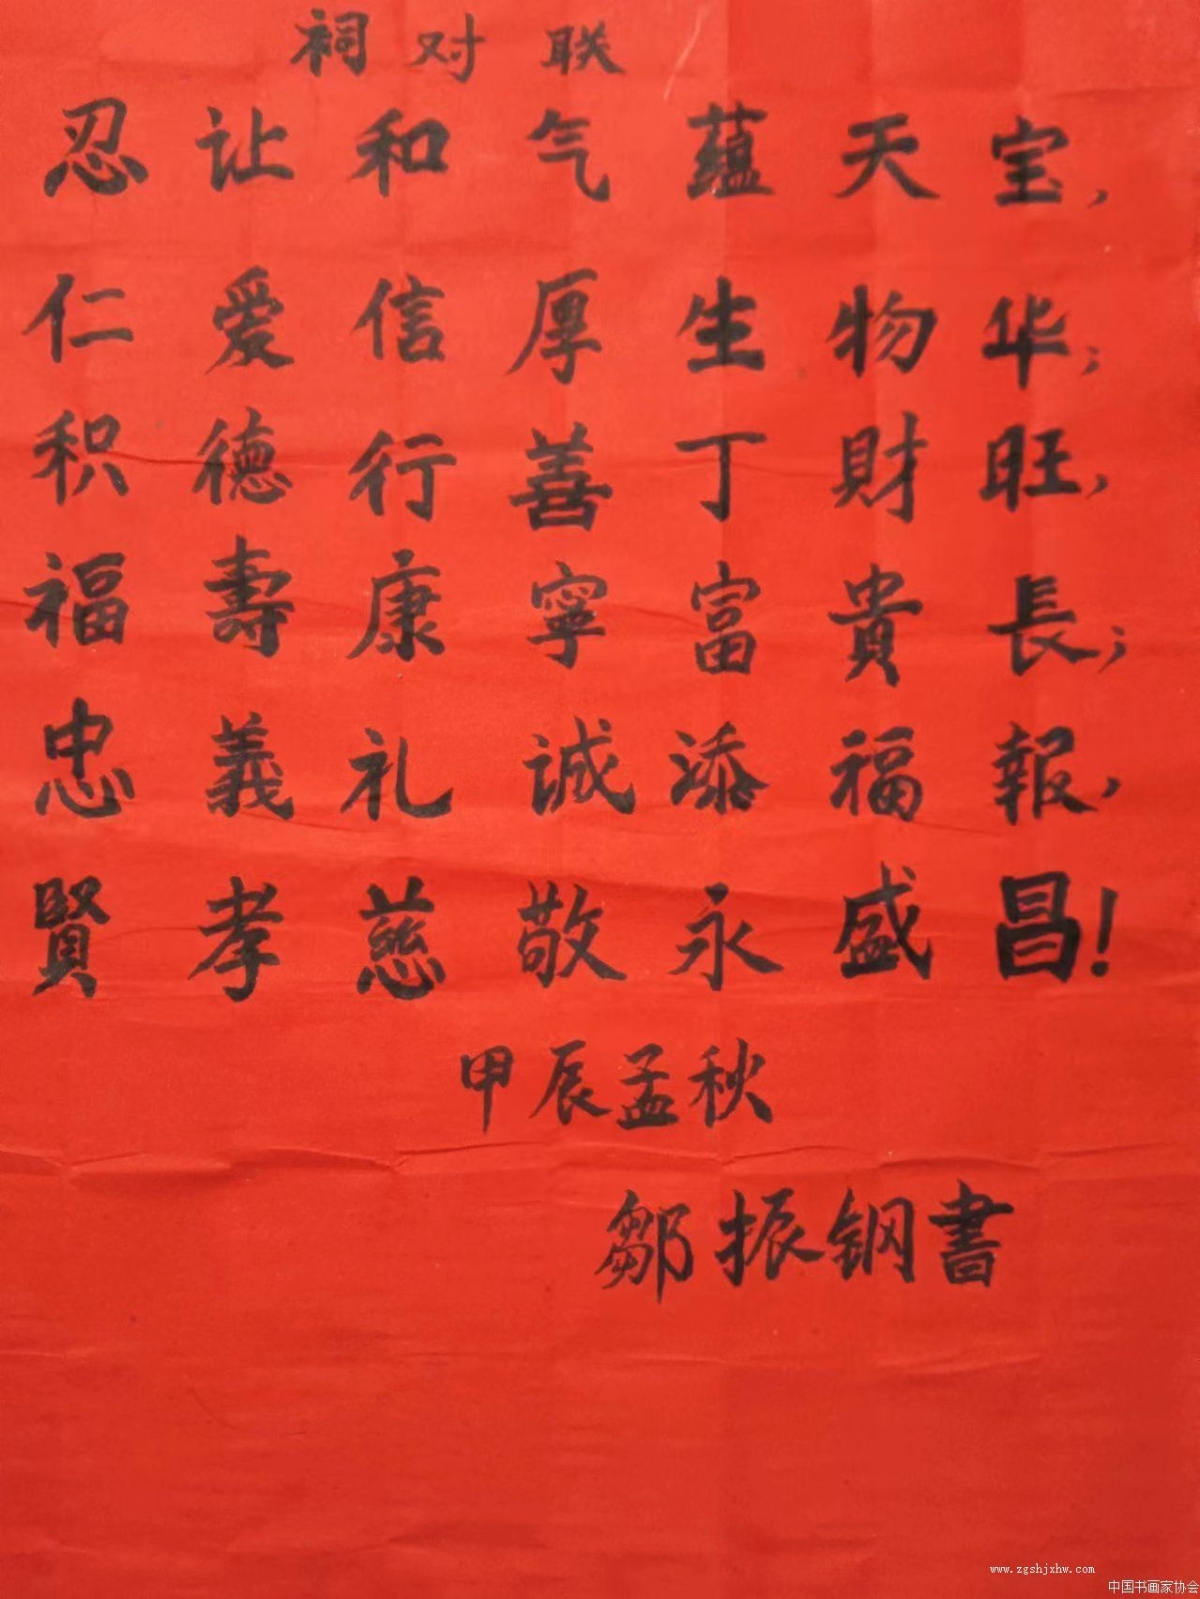 祠对联
忍让和气蕴天宝,
仁爱信厚生物华;
积德行善丁财旺,
福壽康寧富貴長;
忠義礼诚添福報,
賢孝慈敬永盛昌!
甲辰孟秋
鄒振钢書
www.zgshjxhw.com
中国书画家协会